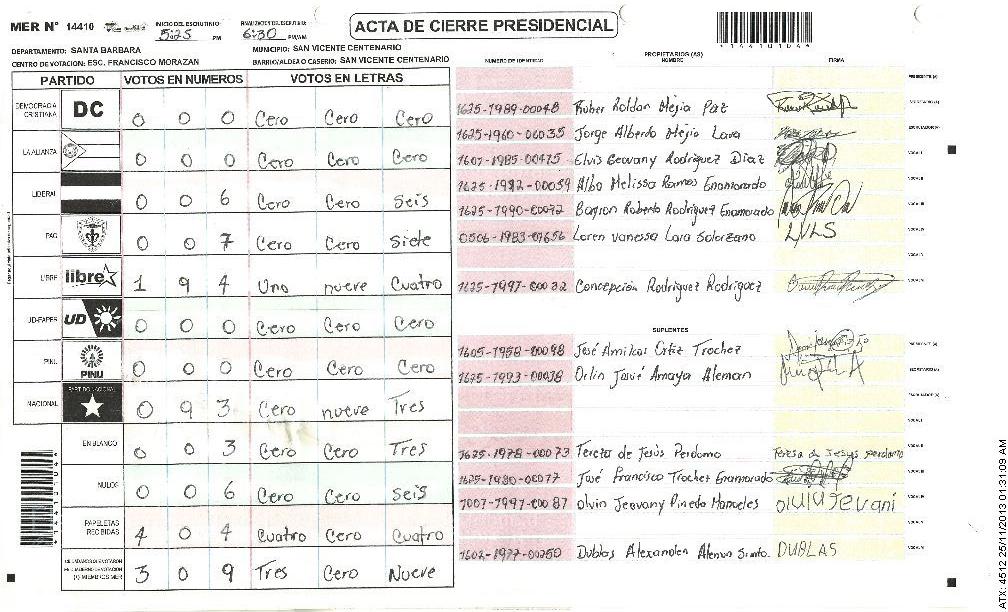 MER N° 14410
INICIO DEL ESCRUTINIO 5:25 PM
FINALIZACION DEL ESCRUTINIO 6:30 PM/AM
ACTA DE CIERRE PRESIDENCIAL
*14410104*
DEPARTAMENTO: SANTA BARBARA
MUNICIPIO: SAN VICENTE CENTENARIO
CENTRO DE VOTACION: ESC. FRANCISCO MORAZAN
BARRIO/ALDEA O CASERIO: SAN VICENTE CENTENARIO
PARTIDO VOTOS EN NUMEROS VOTOS EN LETRAS
DEMOCRACIA CRISTIANA DC 0 0 0 Cero Cero Cero
LA ALIANZA 0 0 0 Cero Cero Cero
LIBERAL 0 0 6 Cero Cero Seis
PAC 0 0 7 Cero Cero Siete
LIBRE libre 1 9 4 Uno nueve Cuatro
UD-FAPER UD 0 0 0 Cero Cero Cero
PINU PINU 0 0 0 Cero Cero Cero
NACIONAL PARTIDO NACIONAL 0 9 3 Cero nueve Tres
EN BLANCO 0 0 3 Cero Cero Tres
NULOS 0 0 6 Cero Cero Seis
PAPELETAS RECIBIDAS 4 0 4 Cuatro Cero Cuatro
3 0 9 Tres Cero Nueve
NUMERO DE IDENTIDAD PROPIETARIOS (AS) NOMBRE FIRMA
PRESIDENTE (A)
1625-1989-00048 Rober Roldan Mejia Paz SECRETARIO (A)
1625-1960-00035 Jorge Alberto Mejia Lara ESCRUTADOR (A)
1607-1985-00475 Elvis Geovany Rodriguez Diaz VOCAL I
1625-1992-00059 Alba Melissa Ramos Enamorado VOCAL II
1625-1990-00072 Bayron Roberto Rodriguez Enamorado VOCAL III
0506-1983-01656 Loren vanessa Lara Solorzano LVLS VOCAL IV
VOCAL V
1625-1997-00032 Concepción Rodriguez Rodriguez VOCAL VI
SUPLENTES
1605-1958-00098 José Amilcar Ortiz Trochez PRESIDENTE (A)
1625-1993-00038 Orlin Josué Amaya Aleman SECRETARIO (A)
ESCRUTADOR (A)
VOCAL I
1625-1978-00073 Tereza de Jesús Perdomo Teresa de Jesus perdomo VOCAL II
1625-1980-00077 José Francisco Trochez Enamorado VOCAL III
1007-1997-00087 olvin Jeovany Pineda VOCAL IV
VOCAL V
1602-1977-00250 Dublas DUBLAS VOCAL VI
ATX: 4512 25/11/2013 01:31:09 AM